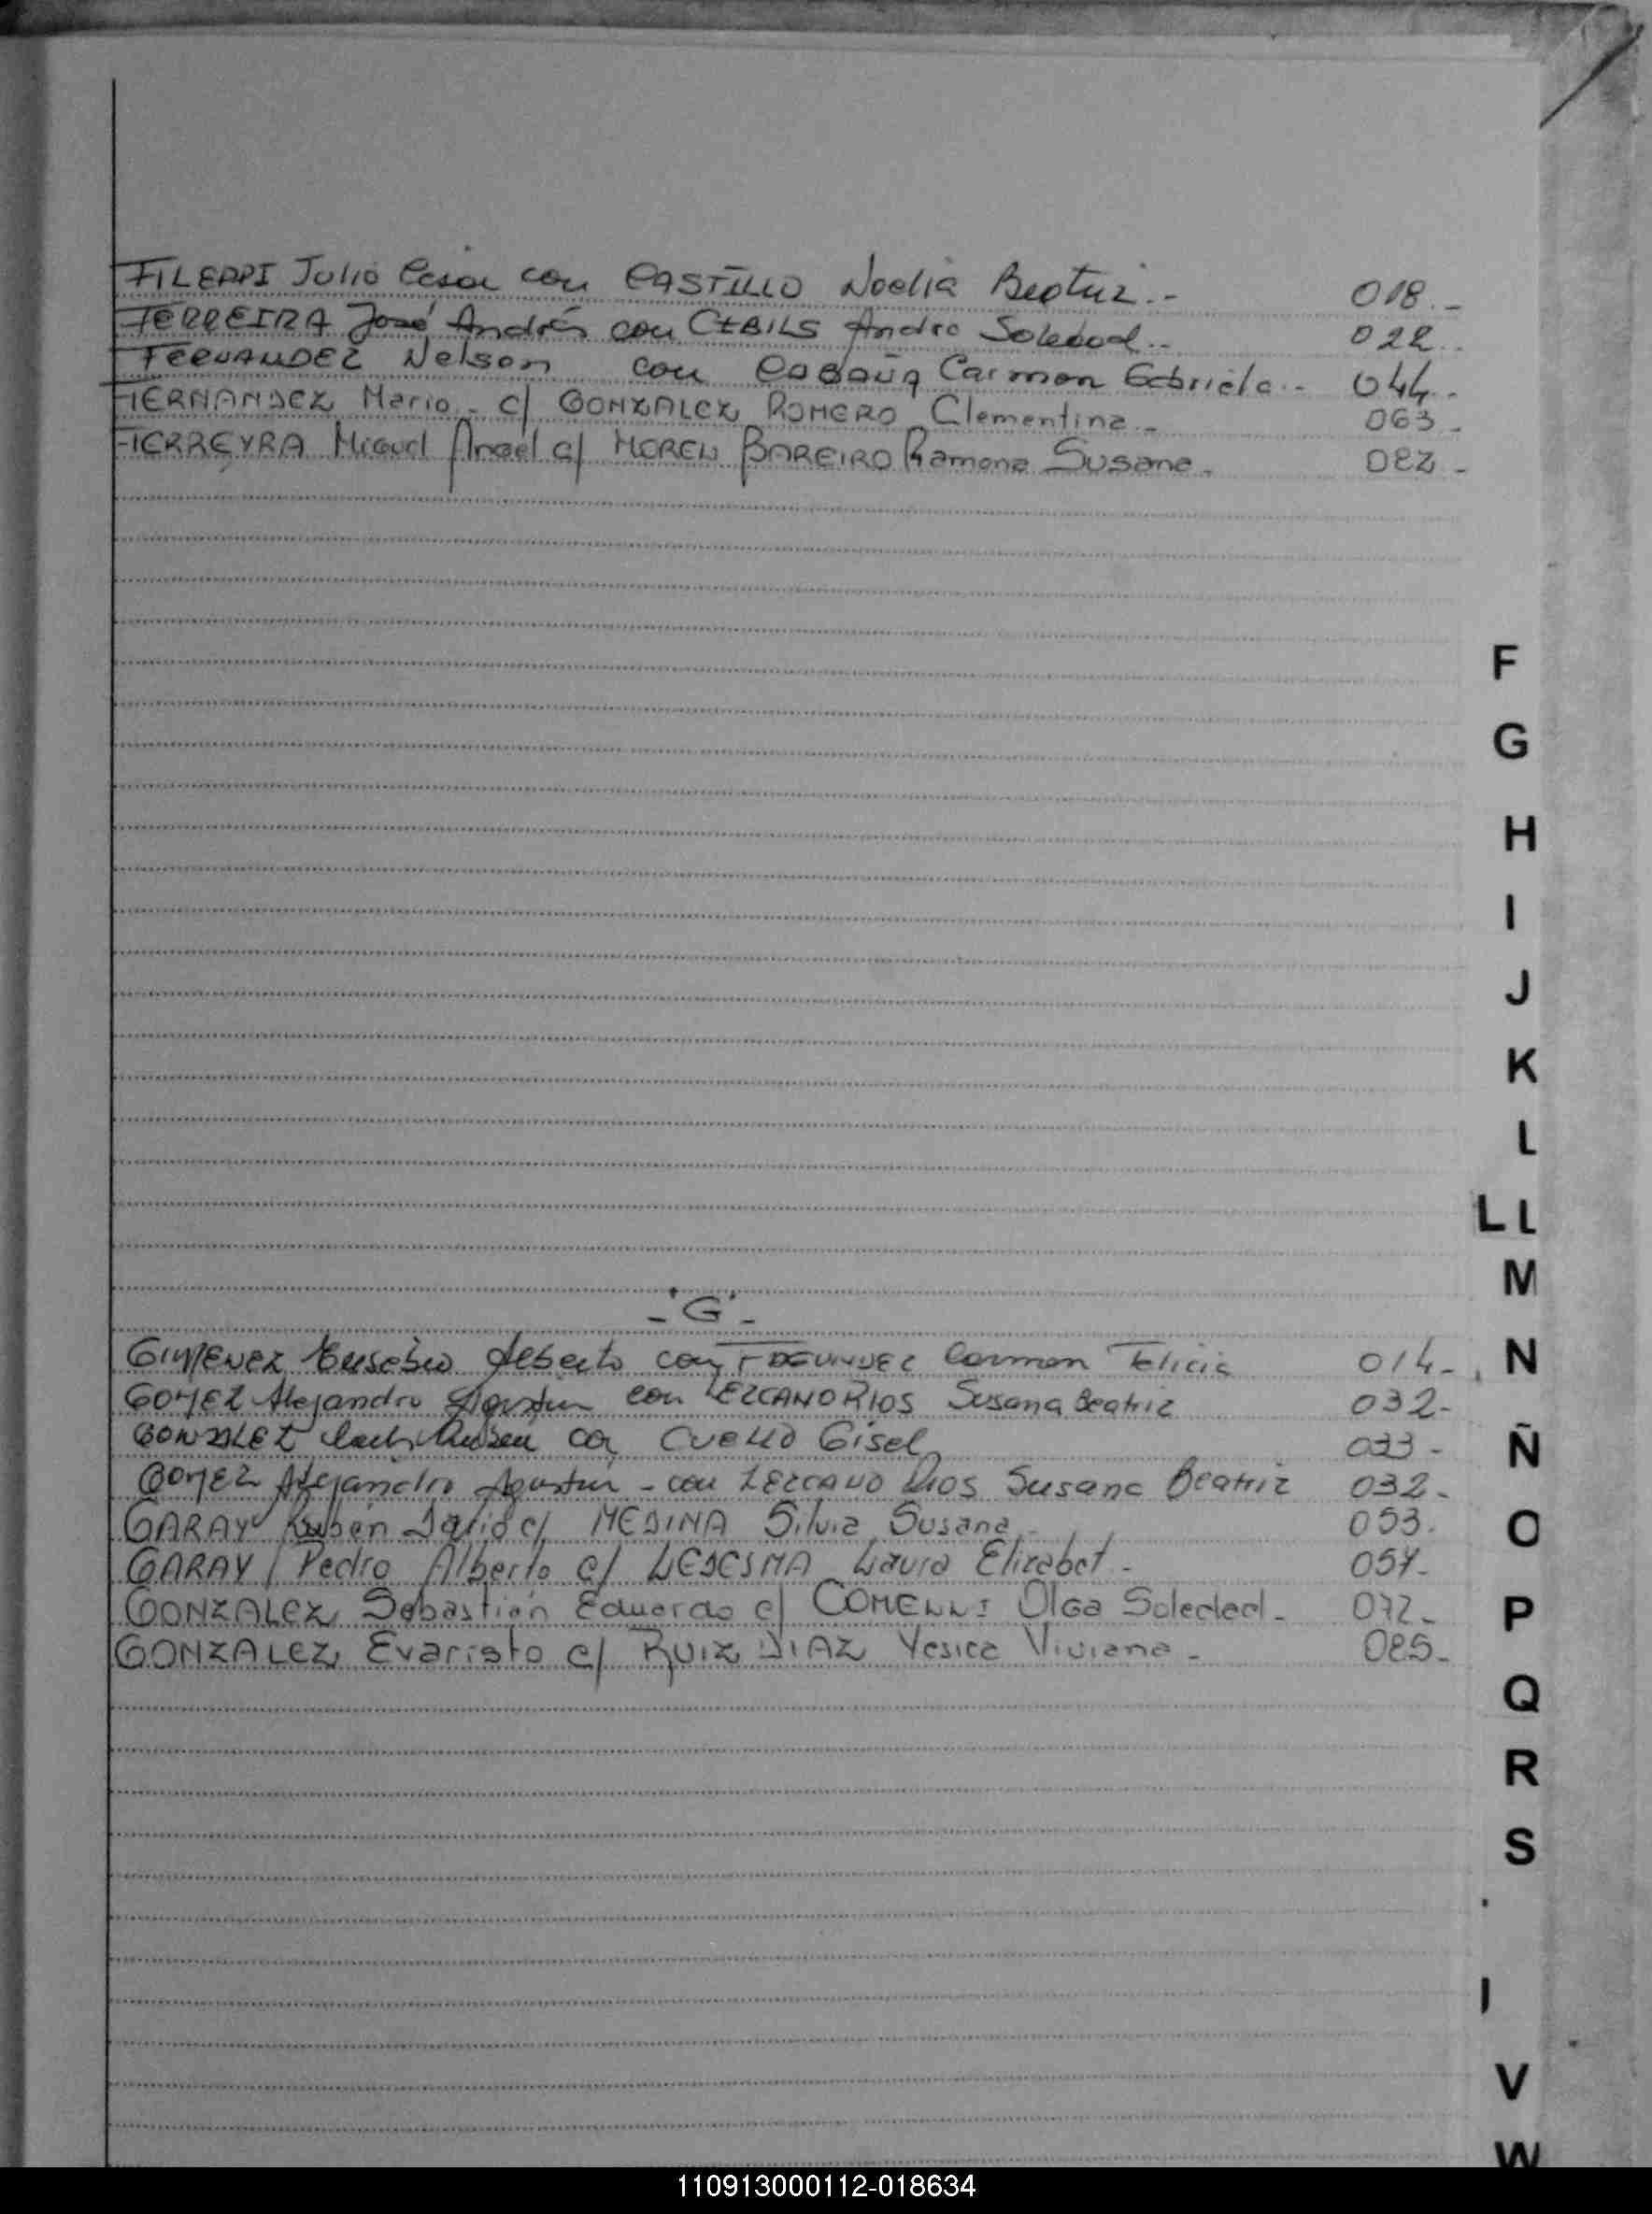 FILEPPI Julio Cesar con CASTILLO Noelia Beatriz.- 018.-
FERREIRA José Andrés con Andrea Soledad.- 022.-
FERNANDEZ Nelson con Carmen Gabriela.- 044.-
FERNANDEZ Mario - c/ GONZALEZ ROMERO Clementina.- 063.-
FERREYRA Miguel Angel c/ BAREIRO Ramona Susana. 082.-
F
G
H
I
J
K
L
LL
M
-"G"-
GIMENEZ Eusebio Alberto con Carmen Felicia 014.-
N
GOMEZ Alejandro Agustin con LEZCANO RIOS Susana Beatriz 032-
GONZALEZ Ruben con CUELLO Gisel 033-
Ñ
GOMEZ Alejandro Agustin - con LEZCANO RIOS Susana Beatriz 032-
GARAY Ruben Dario c/ MEDINA Silvia Susana.- 053.
O
GARAY Pedro Alberto c/ LEDESMA Laura Elizabet.-
GONZALEZ Sebastian Eduardo c/ COMELLI Olga Soledad.- 072-
P
GONZALEZ Evaristo c/ RUIZ DIAZ Yesica Viviana.- 085-
Q
R
S
V
W
110913000112-018634